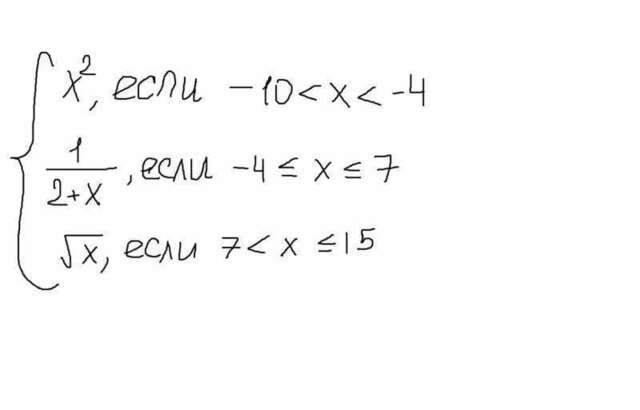 x², если −10 < x < −4
1/(2+x), если −4 ≤ x ≤ 7
√x, если 7 < x ≤ 15